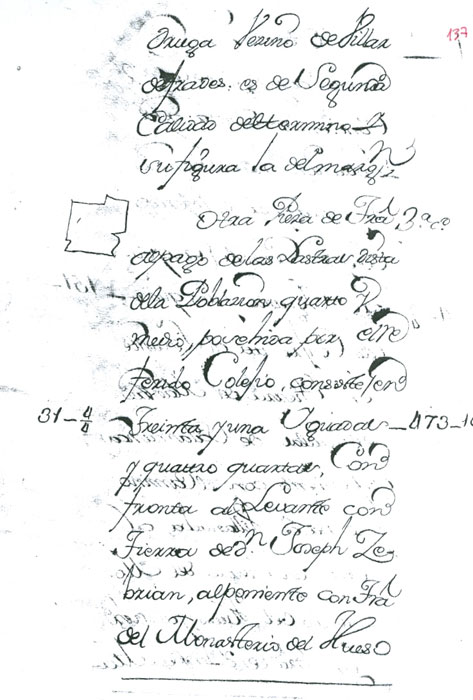 137
Vezino de Villar
de frades: es de Segunda
Calidad determino y
su figura la del margn
Otra Pieza de Tra. 3ª cd
al pago de las Lastras dista
de la Poblazion quarto y
medio, posehida por el Re
ferido Colexio, consiste en
31-4/4 Treinta y una Yguadas 473-10
y quattro quartas, Con
fronta al Levante con
Tierra de Dn Joseph Ze
brian, al poniente con Tra
del Monasterio del Hueso